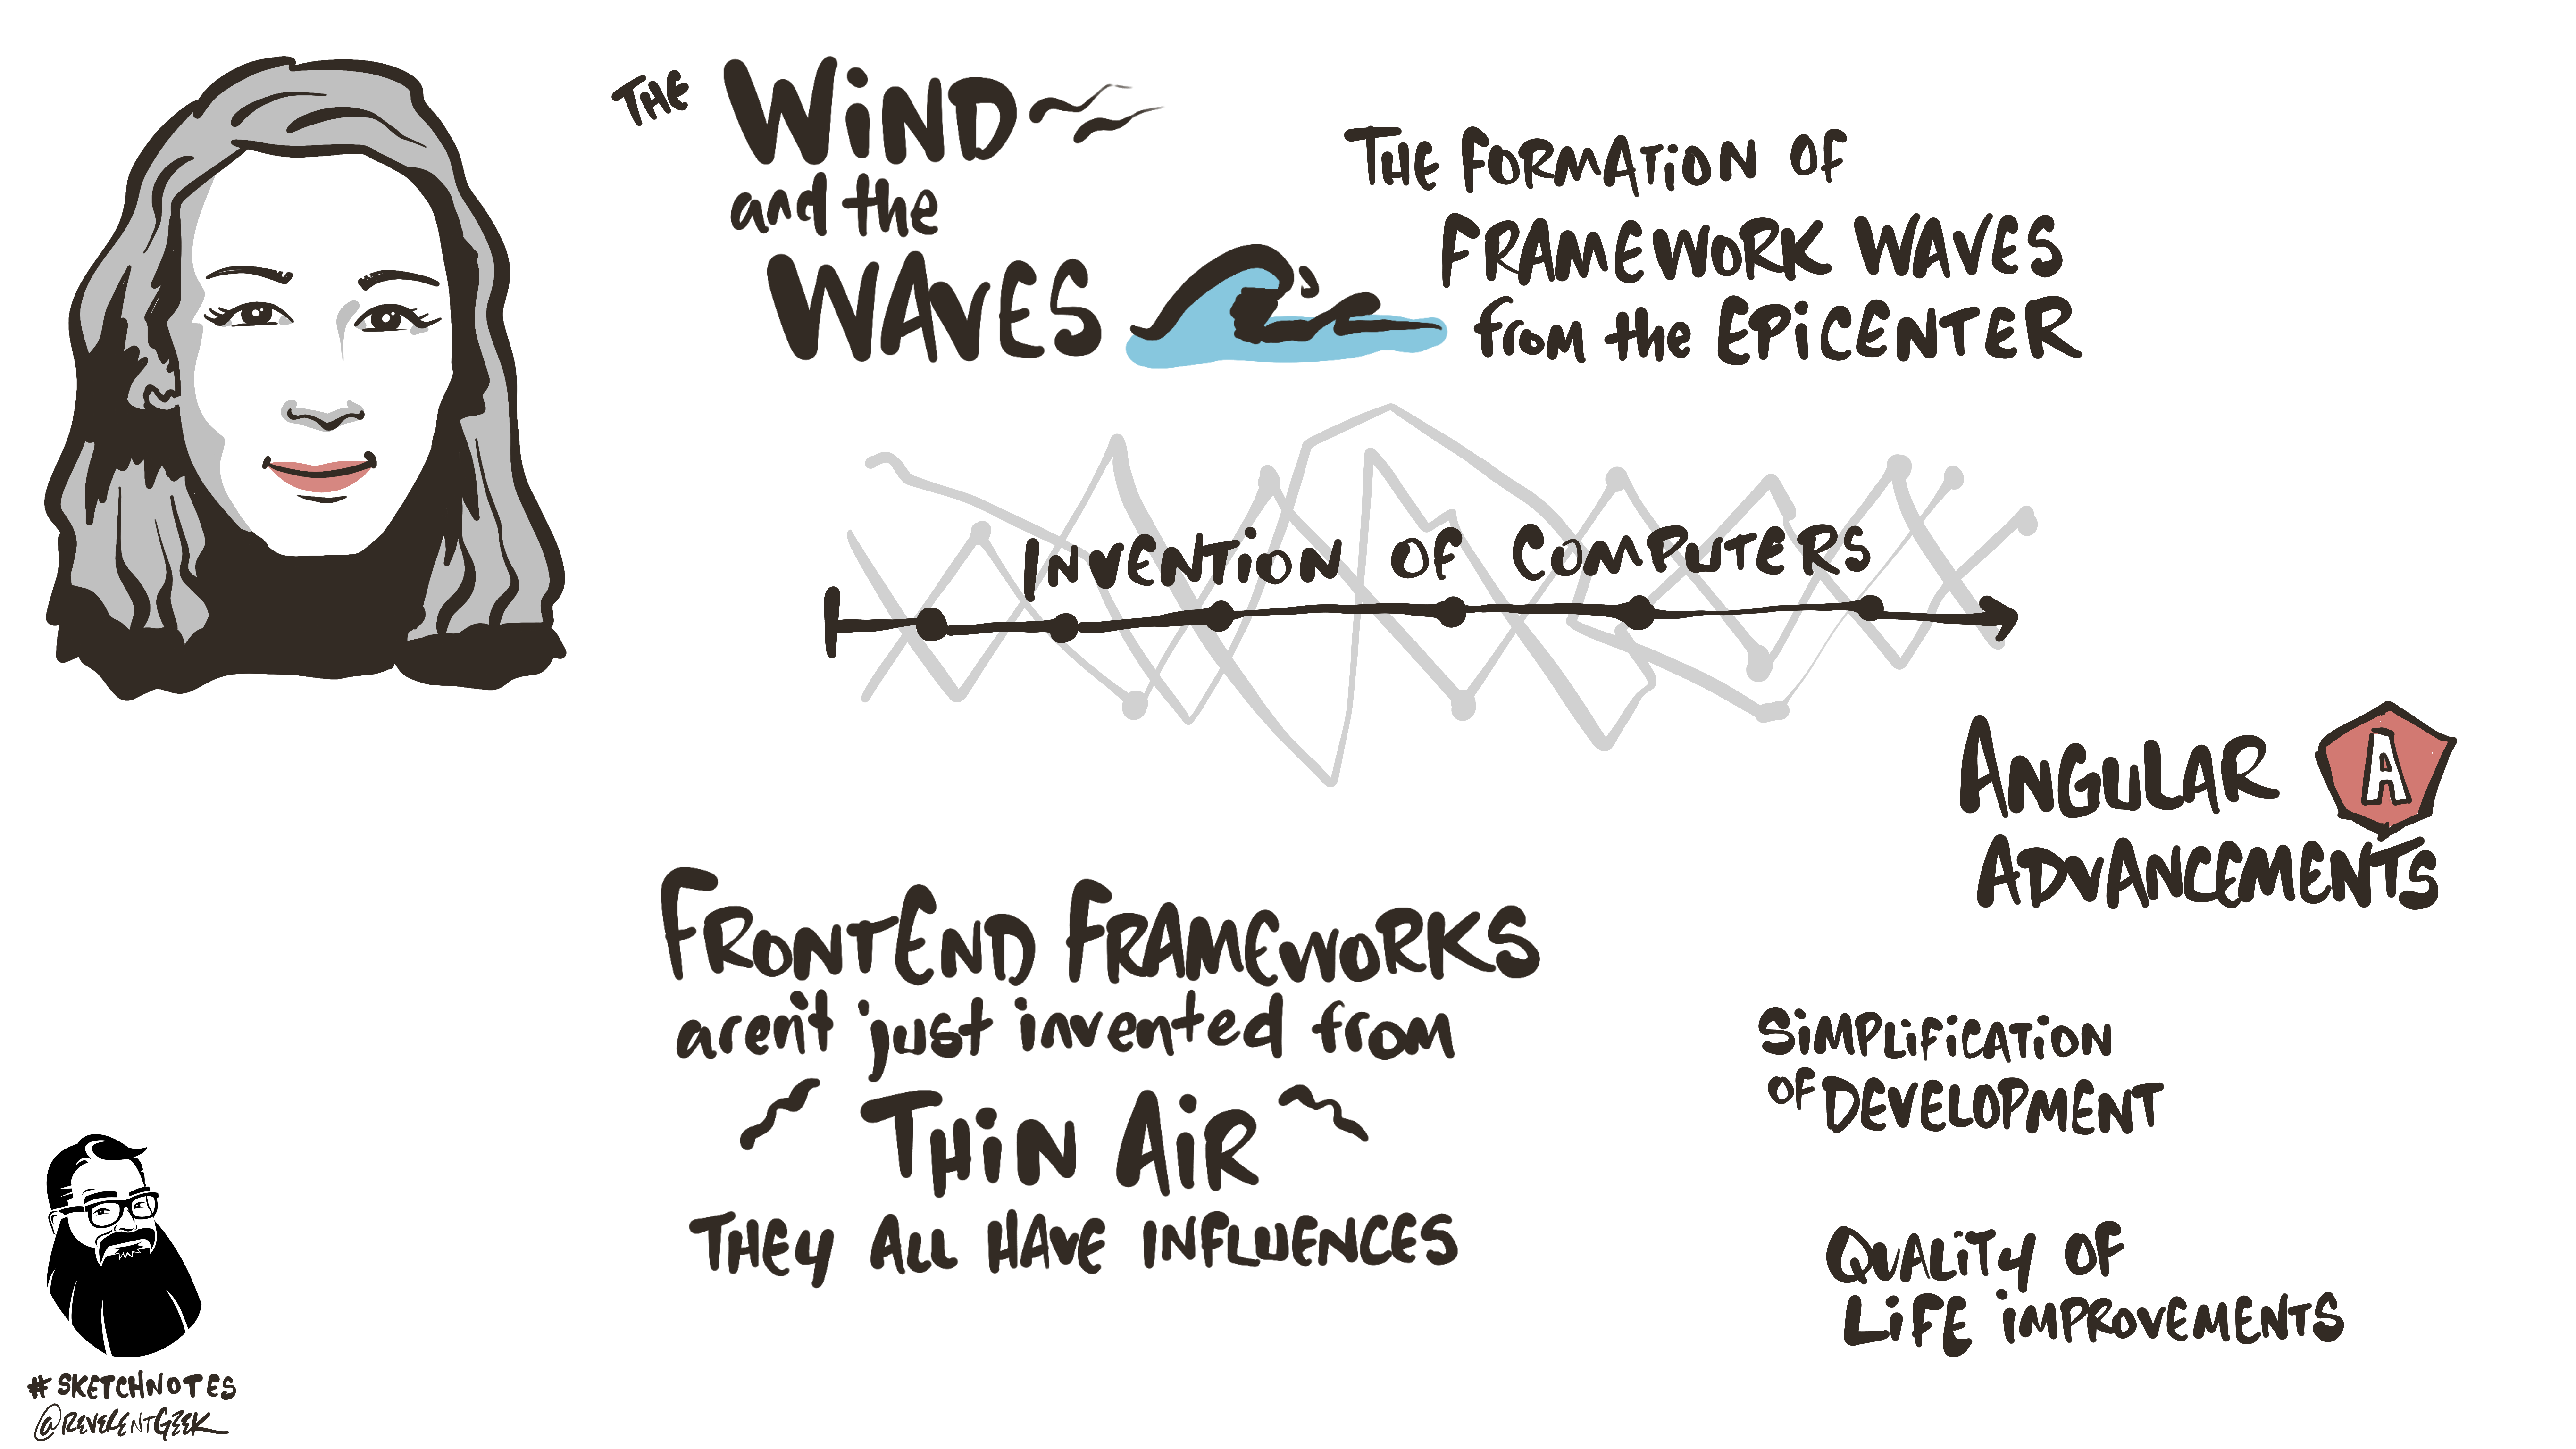 THE WiND
and the
WAVES
THE FORMATiON OF
FRAMEWORK WAVES
from the EPiCENTER
INVENTiON OF COMPUTERS
ANGULAR A
ADVANCEMENTS
FRONTEND FRAMEWORKS
aren't just invented from
THiN AiR
THEY ALL HAVE INFLUENCES
SiMPLiFiCATiON
OF DEVELOPMENT
QUALiTY OF
LiFE iMPROVEMENTS
#SKETCHNOTES
@REVERENTGEEK